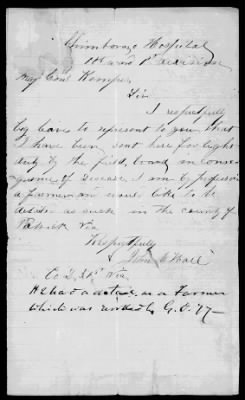 Chimborazo Hospital
Ward 1st division
Maj Genl Kemper
Sir
I respectfully
beg leave to represent to you that
I have been sent here for light
duty by the field board in conse
quence of disease I am by profession
a farmer an would like to be
detailed as such in the county of
Patrick Va
Respectfully
John C Hall
Co D Va
He had a detail as a Farmer
which was revoked by G.O. 77